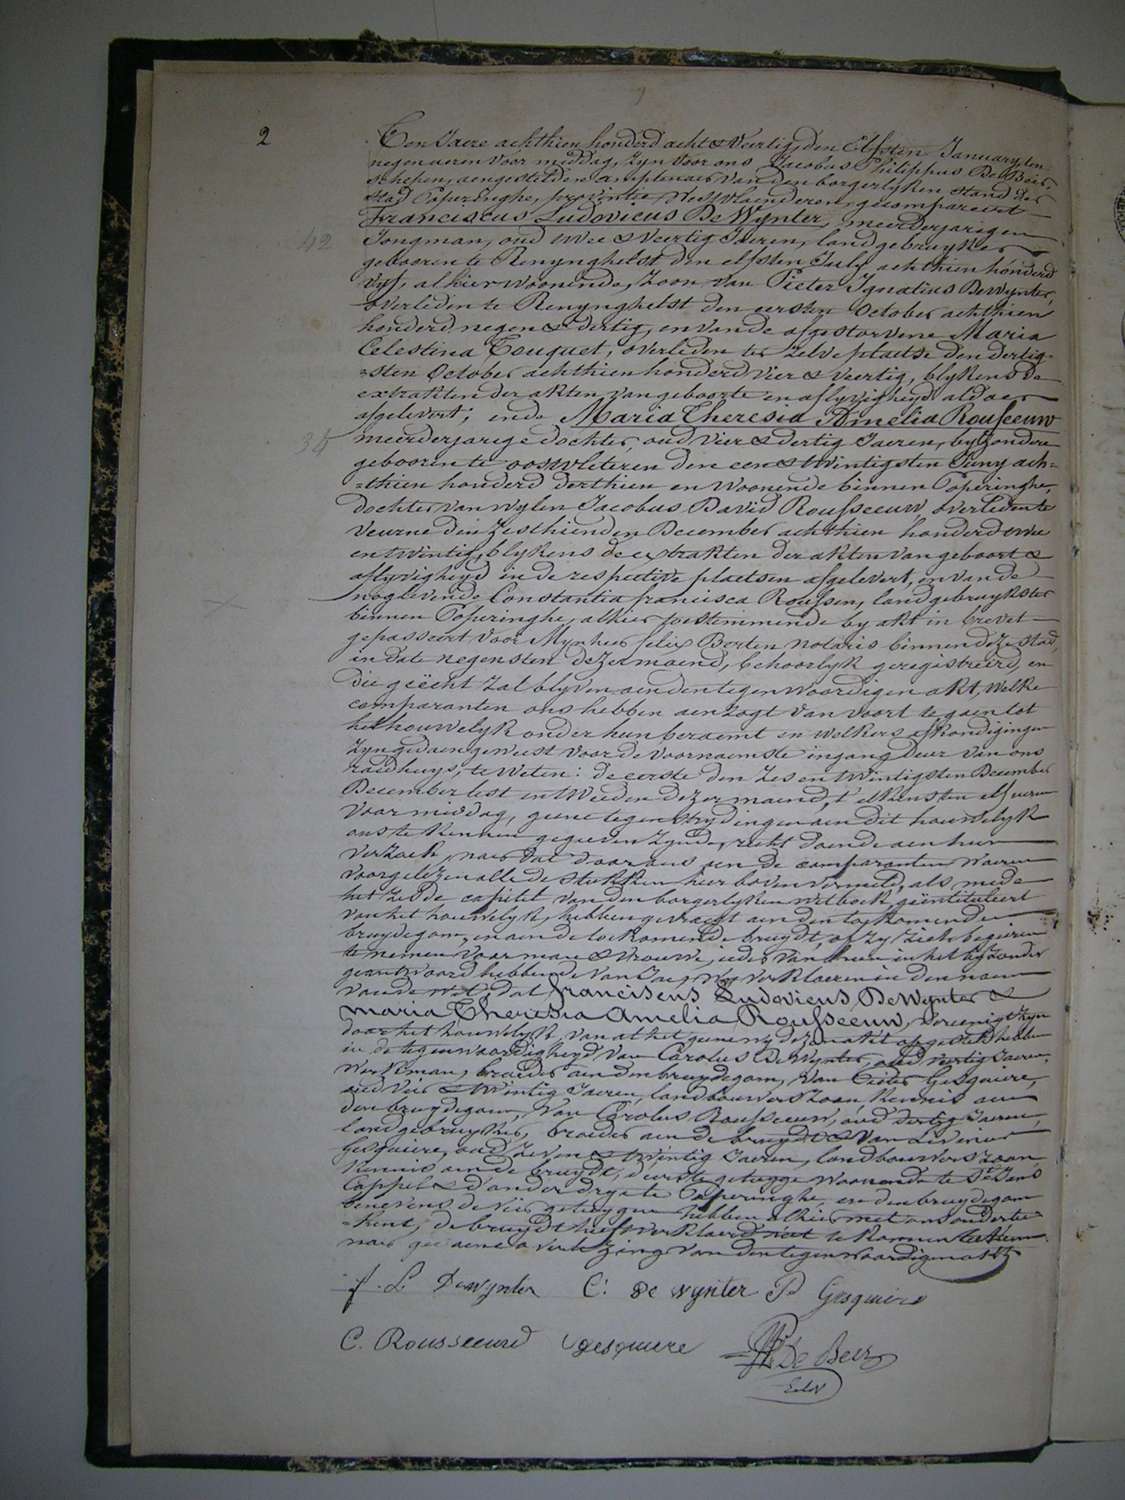 2
Ten Jaere achthien honderd acht & Veertig, den Elfsten January, ten
negen uren voor middag, zyn voor ons Jacobus Philippus De Beir,
schepen, aengestelden amptenaer van den borgerlyken stand der
stad Poperinghe, provintie West Vlaenderen, gecompareert
Franciscus Ludovicus De Wynter, meerderjarigen
42
Jongman, oud twee & Veertig Jaeren, landgebruyker
geboren te Renynghelst den elfsten July achthien honderd
vyf, alhier woonende, zoon van Pieter Ignatius De Wynter,
overleden te Renynghelst den eersten October achthien
honderd negen & dertig, en van de afgestorvene Maria
Celestina Touquet, overleden ter zelve plaetse den dertig=
=sten October achthien honderd vier & veertig, blykens de
extrakten der akten van geboorte en aflyvigheyd aldaer
afgelevert; ende Maria Theresia Amelia Rousseeuw
34
meerderjarige dochter, oud vier & dertig Jaeren, byzondere
geboren te oostvleteren den een & twintigsten Juny ach=
=thien honderd derthien en woonende binnen Poperinghe,
dochter van wylen Jacobus David Rousseeuw, overleden te
Veurne den zesthienden December achthien honderd twee
en twintig, blykens de extrakten der akten van geboort &
aflyvigheyd in de respective plaetsen afgelevert, en van de
noglevende Constantia francisca Roussen, landgebruykster
binnen Poperinghe, alhier toestemmende by akt in brevet
gepasseert voor Mynheer felix Berten notaris binnen deze stad,
in date negensten dezer maend, behoorlyk geregistreerd, en
die geëcht zal blyven aen den tegenwoordigen akt, welke
comparanten ons hebben aenzogt van voort te gaen tot
het houwelyk onder hun beraemt en welkers afkondigingen
zyn gedaen geweest voor de voornaemste ingang deur van ons
raedhuys, te weten: de eerste den zes en twintigsten December
December lest en tweeden dezer maend, t' elkens ten elf uren
voor middag, geene tegenstrydingen aen dit houwelyk
ons te kennen gegeven zynde, recht doende aen hun
verzoek, naer dat door ons aen de comparanten waeren
voorgelezen alle de stukken hier boven vermeld, als mede
het zesde capitel van den borgerlyken wetboek geïntituleert
van het houwelyk, hebben gevraegt aen den toekomenden
bruydegom, en aen de toekomende bruydt, of zy zich begeeren
te nemen voor man & vrouwe, ieder van hun in het byzonder
geantwoord hebbende van Jae, wy verklaeren in den naem
van de wet, dat franciscus Ludovicus De Wynter &
Maria Theresia Amelia Rousseeuw, vereenigt zyn
door het houwelyk, van al het geene wy dezen akt opgestelt hebben
in de tegenwoordigheyd van Carolus De Wynter, oud veertig Jaeren,
werkman, broeder aen den bruydegom, van Pieter Gesquiere,
oud vier & twintig Jaeren, landbouwers zoon, kennis aen
den bruydegom, van Carolus Rousseeuw, oud dertig Jaeren,
landgebruyker, broeder aen de bruydt & van Livinus
Gesquiere, oud zeven & twintig Jaeren, landbouwers zoon,
kennis aen de bruydt, d'eerste getuyge woonende te St Jans
Cappel & d'ander drye te Poperinghe, en den bruydegom
benevens de vier getuygen hebben alhier met ons ondertee=
=kent, de bruydt heeft verklaerd niet te konnen teekenen
naer gedaene overlezing van den tegenwoordigen akt
f. L DeWynter C. De wynter P Gesquiere
C. Rousseeuw Gesquiere De Beir